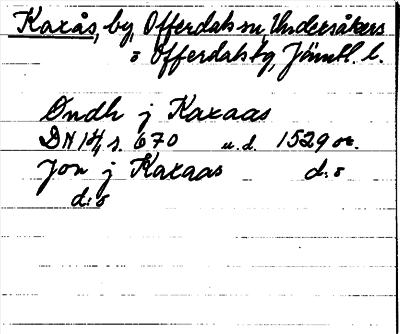 Kaxås, by, Offerdals sn, Undersåkers
o Offerdals tg, Jämtl. l.
Öndh j Kaxaas
DN 14, s. 670 u.d. 1529 or.
Jon j Kaxaas d:o
d:o